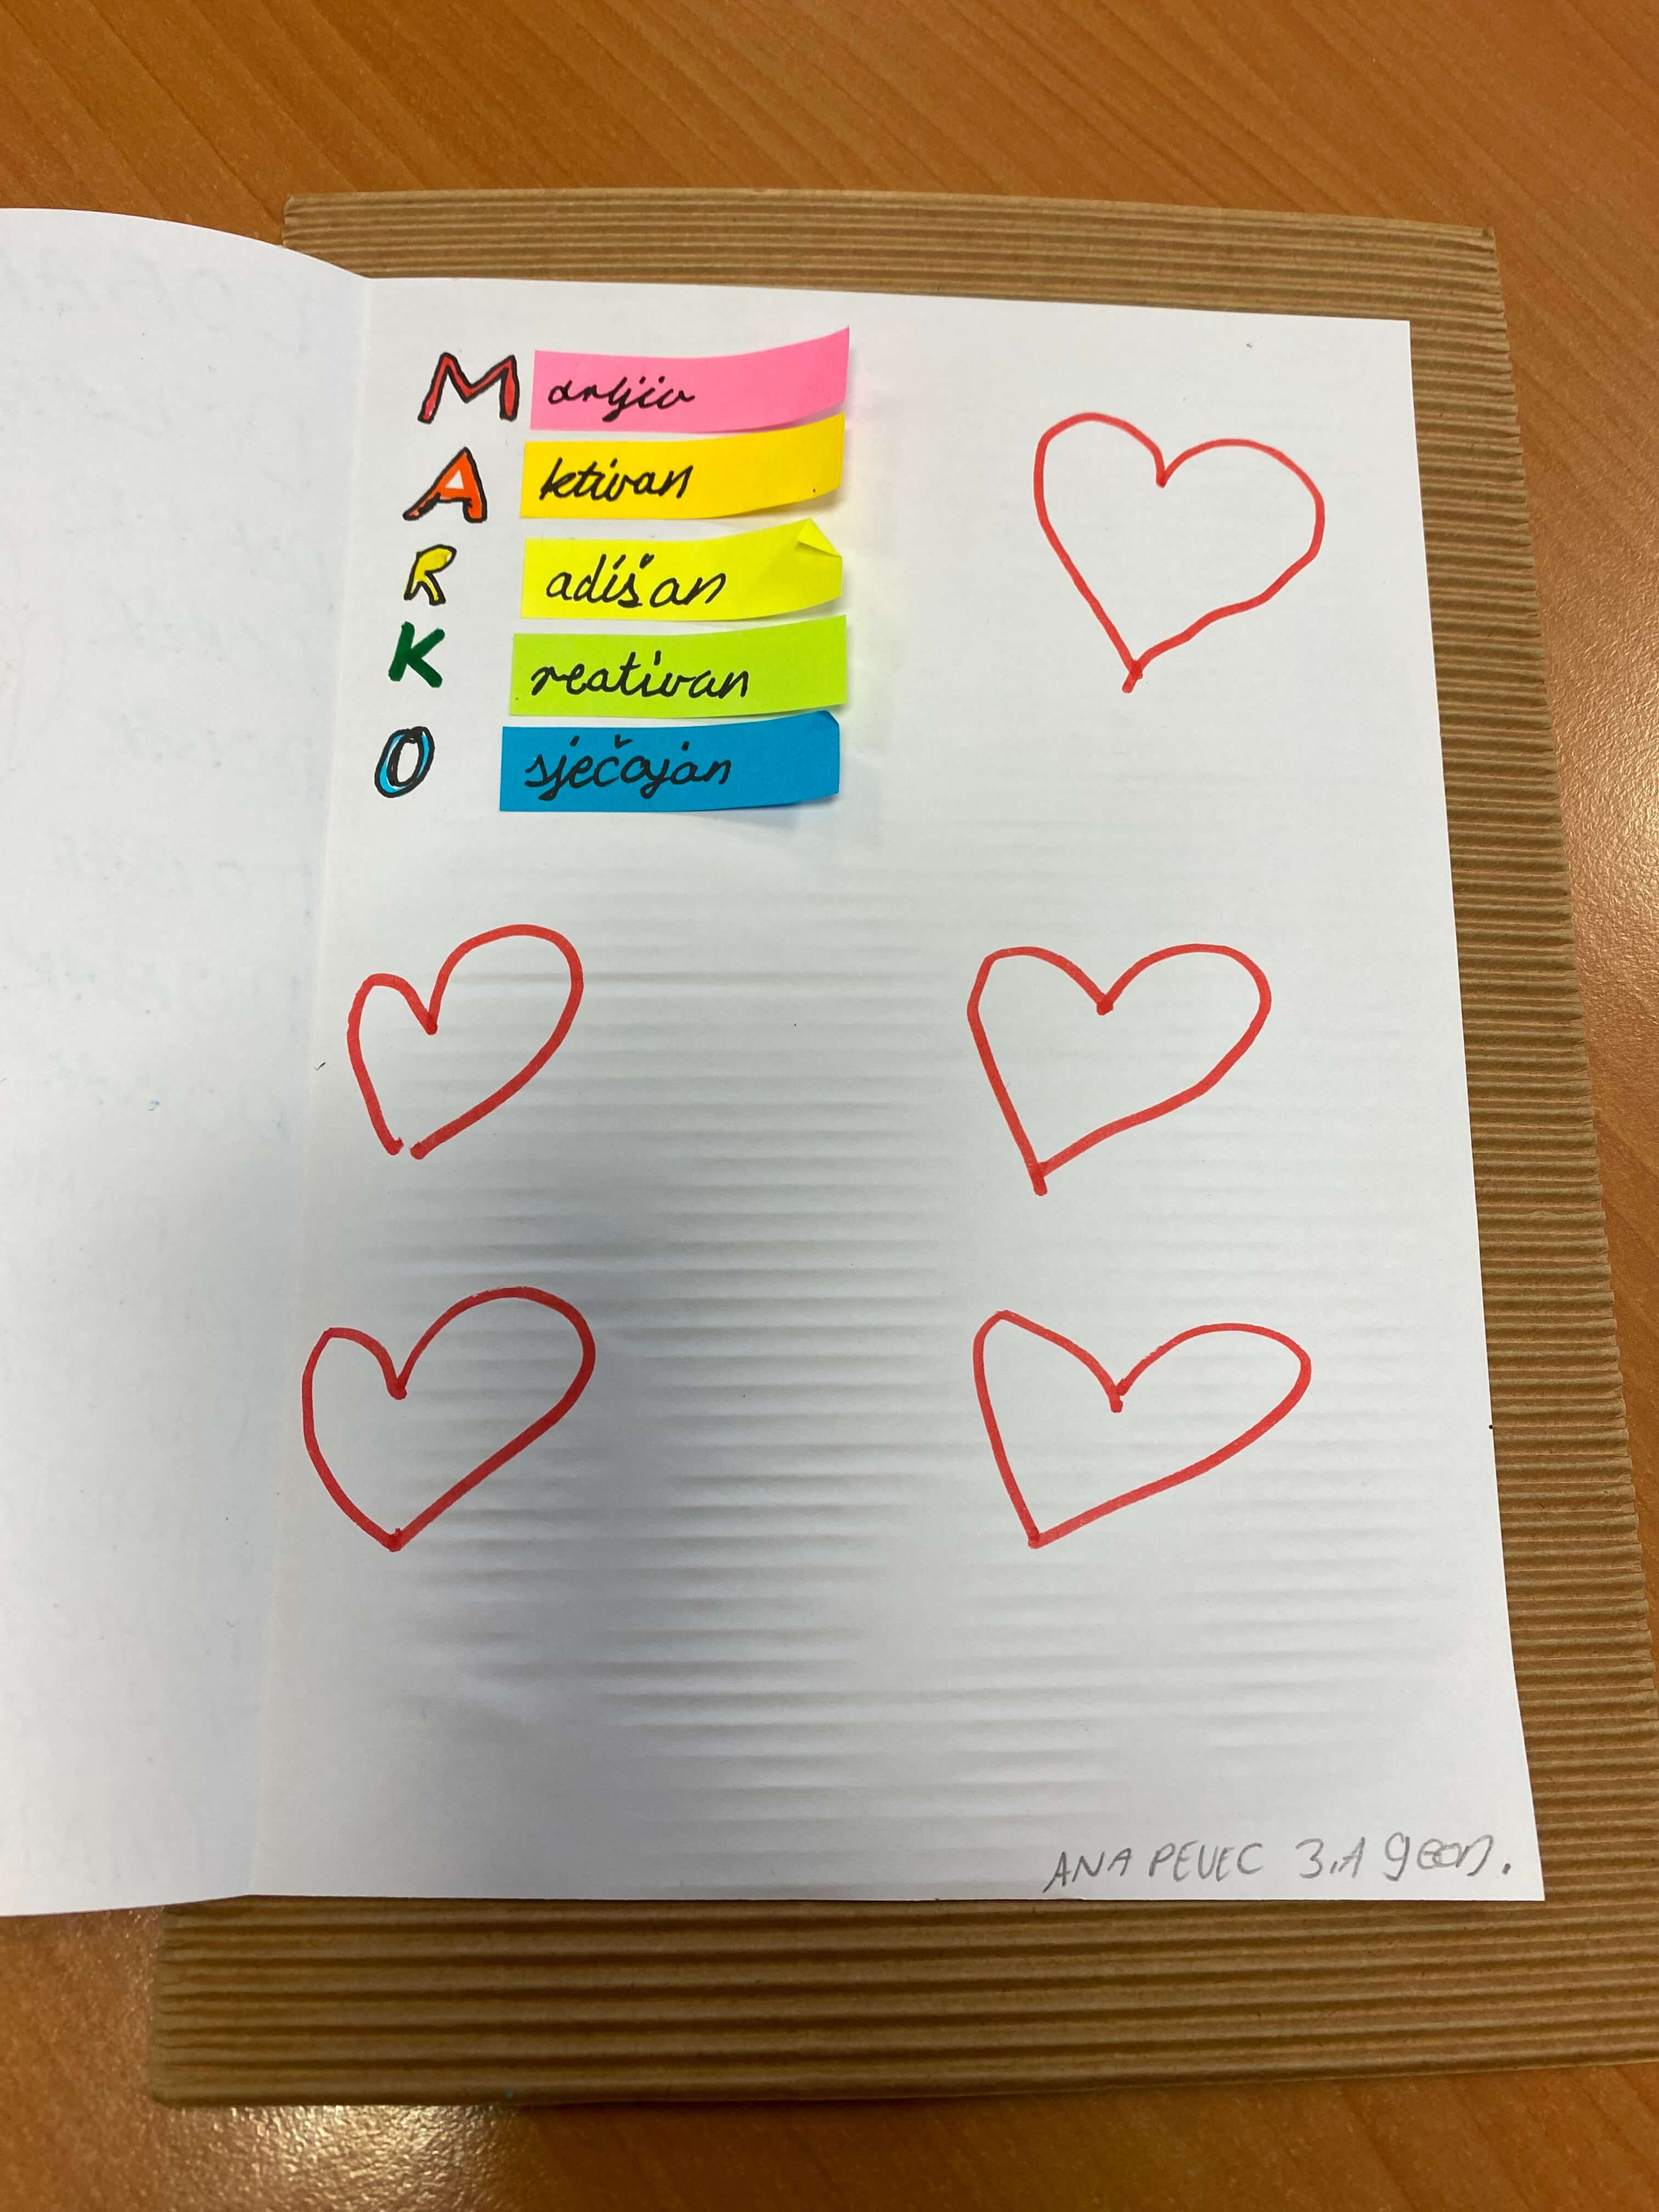 M arljiv
A ktivan
R adišan
K reativan
O sječajan
ANA PEVEC 3.A geom.